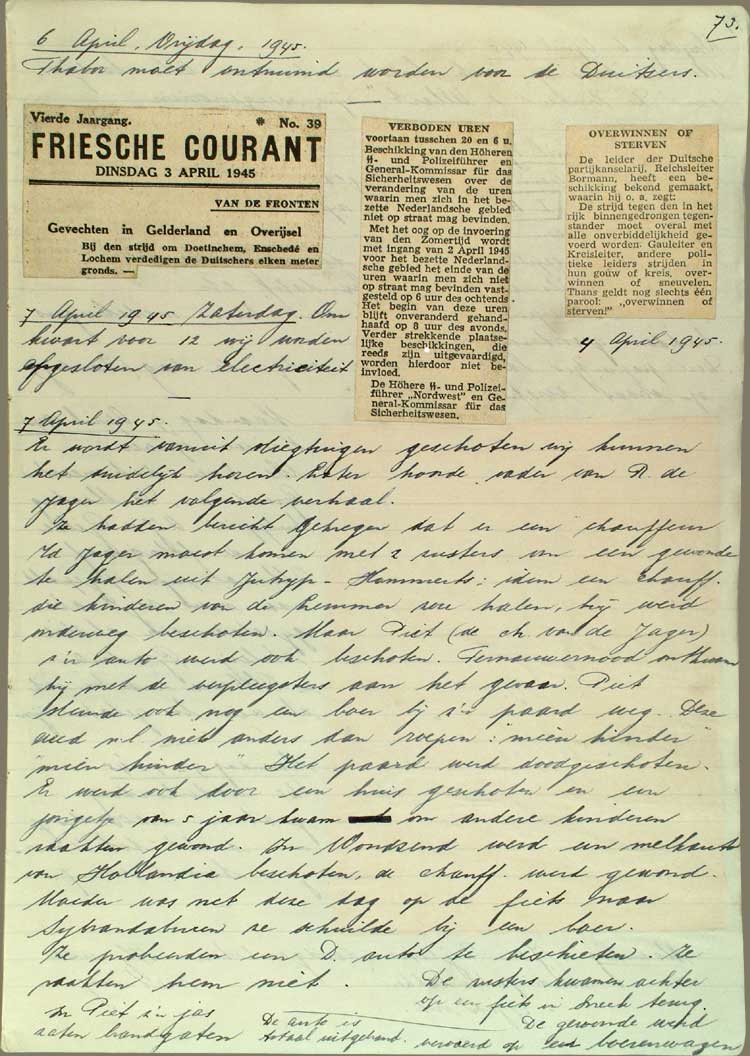 73.
6 April, Vrijdag, 1945.
Thabor moet ontruimd worden voor de Duitsers.
Vierde Jaargang. * No. 39
FRIESCHE COURANT
DINSDAG 3 APRIL 1945
VAN DE FRONTEN
Gevechten in Gelderland en Overijsel
Bij den strijd om Doetinchem, Enschedé en
Lochem verdedigen de Duitschers elken meter
gronds. —
VERBODEN UREN
voortaan tusschen 20 en 6 u.
Beschikking van den Höheren
SS- und Polizeiführer en
General-Kommissar für das
Sicherheitswesen over de
verandering van de uren
waarin men zich in het be-
zette Nederlandsche gebied
niet op straat mag bevinden.
Met het oog op de invoering
van den Zomertijd wordt
met ingang van 2 April 1945
voor het bezette Nederland-
sche gebied het einde van de
uren waarin men zich niet
op straat mag bevinden vast-
gesteld op 6 uur des ochtends.
Het begin van deze uren
blijft onveranderd gehand-
haafd op 8 uur des avonds.
Verder strekkende plaatse-
lijke beschikkingen, die
reeds zijn uitgevaardigd,
worden hierdoor niet be-
invloed.
De Höhere SS- und Polizei-
führer „Nordwest" en Ge-
neral-Kommissar für das
Sicherheitswesen.
OVERWINNEN OF
STERVEN
De leider der Duitsche
partijkanselarij, Reichsleiter
Bormann, heeft een be-
schikking bekend gemaakt,
waarin hij o. a. zegt:
De strijd tegen den in het
rijk binnengedrongen tegen-
stander moet overal met
alle onverbiddelijkheid ge-
voerd worden. Gauleiter en
Kreisleiter, andere poli-
tieke leiders strijden in
hun gouw of kreis, over-
winnen of sneuvelen.
Thans geldt nog slechts één
parool: „overwinnen of
sterven!"
4 April 1945.
7 April 1945 Zaterdag. Om
kwart voor 12 wij worden
afgesloten van electriciteit
7 April 1945.
Er wordt vanuit vliegtuigen geschoten wij kunnen
het duidelijk horen. Later hoorde vader van R. de
Jager het volgende verhaal.
Ze hadden bericht gekregen dat er een chauffeur
Jager moest komen met 2 zusters om een gewonde
te halen uit Jutryp - Hommerts; idem een chauff.
die kinderen van de Lemmer zou halen, hij werd
onderweg beschoten. Maar Piet (de ch. van de Jager)
z'n auto werd ook beschoten. Ternauwernood ontkwam
hij met de verpleegsters aan het gevaar. Piet
stuurde ook nog een boer bij z'n paard weg. Deze
deed n.l. niet anders dan roepen: "mien kinder"
"mien kinder" Het paard werd doodgeschoten.
Er werd ook door een huis geschoten en een
jongetje van 5 jaar kwam om andere kinderen
raakten gewond. In Woudsend werd een melkauto
van Hollandia beschoten, de chauff. werd gewond.
Moeder was net deze dag op de fiets naar
Sybrandaburen ze schuilde bij een boer.
Ze probeerden een D. auto te beschieten. Ze
raakten hem niet. De zusters kwamen achter
op een fiets in Sneek terug.
In Piet z'n jas
zaten brandgaten
De auto is
totaal uitgebrand.
De gewonde werd
vervoerd op een boerenwagen